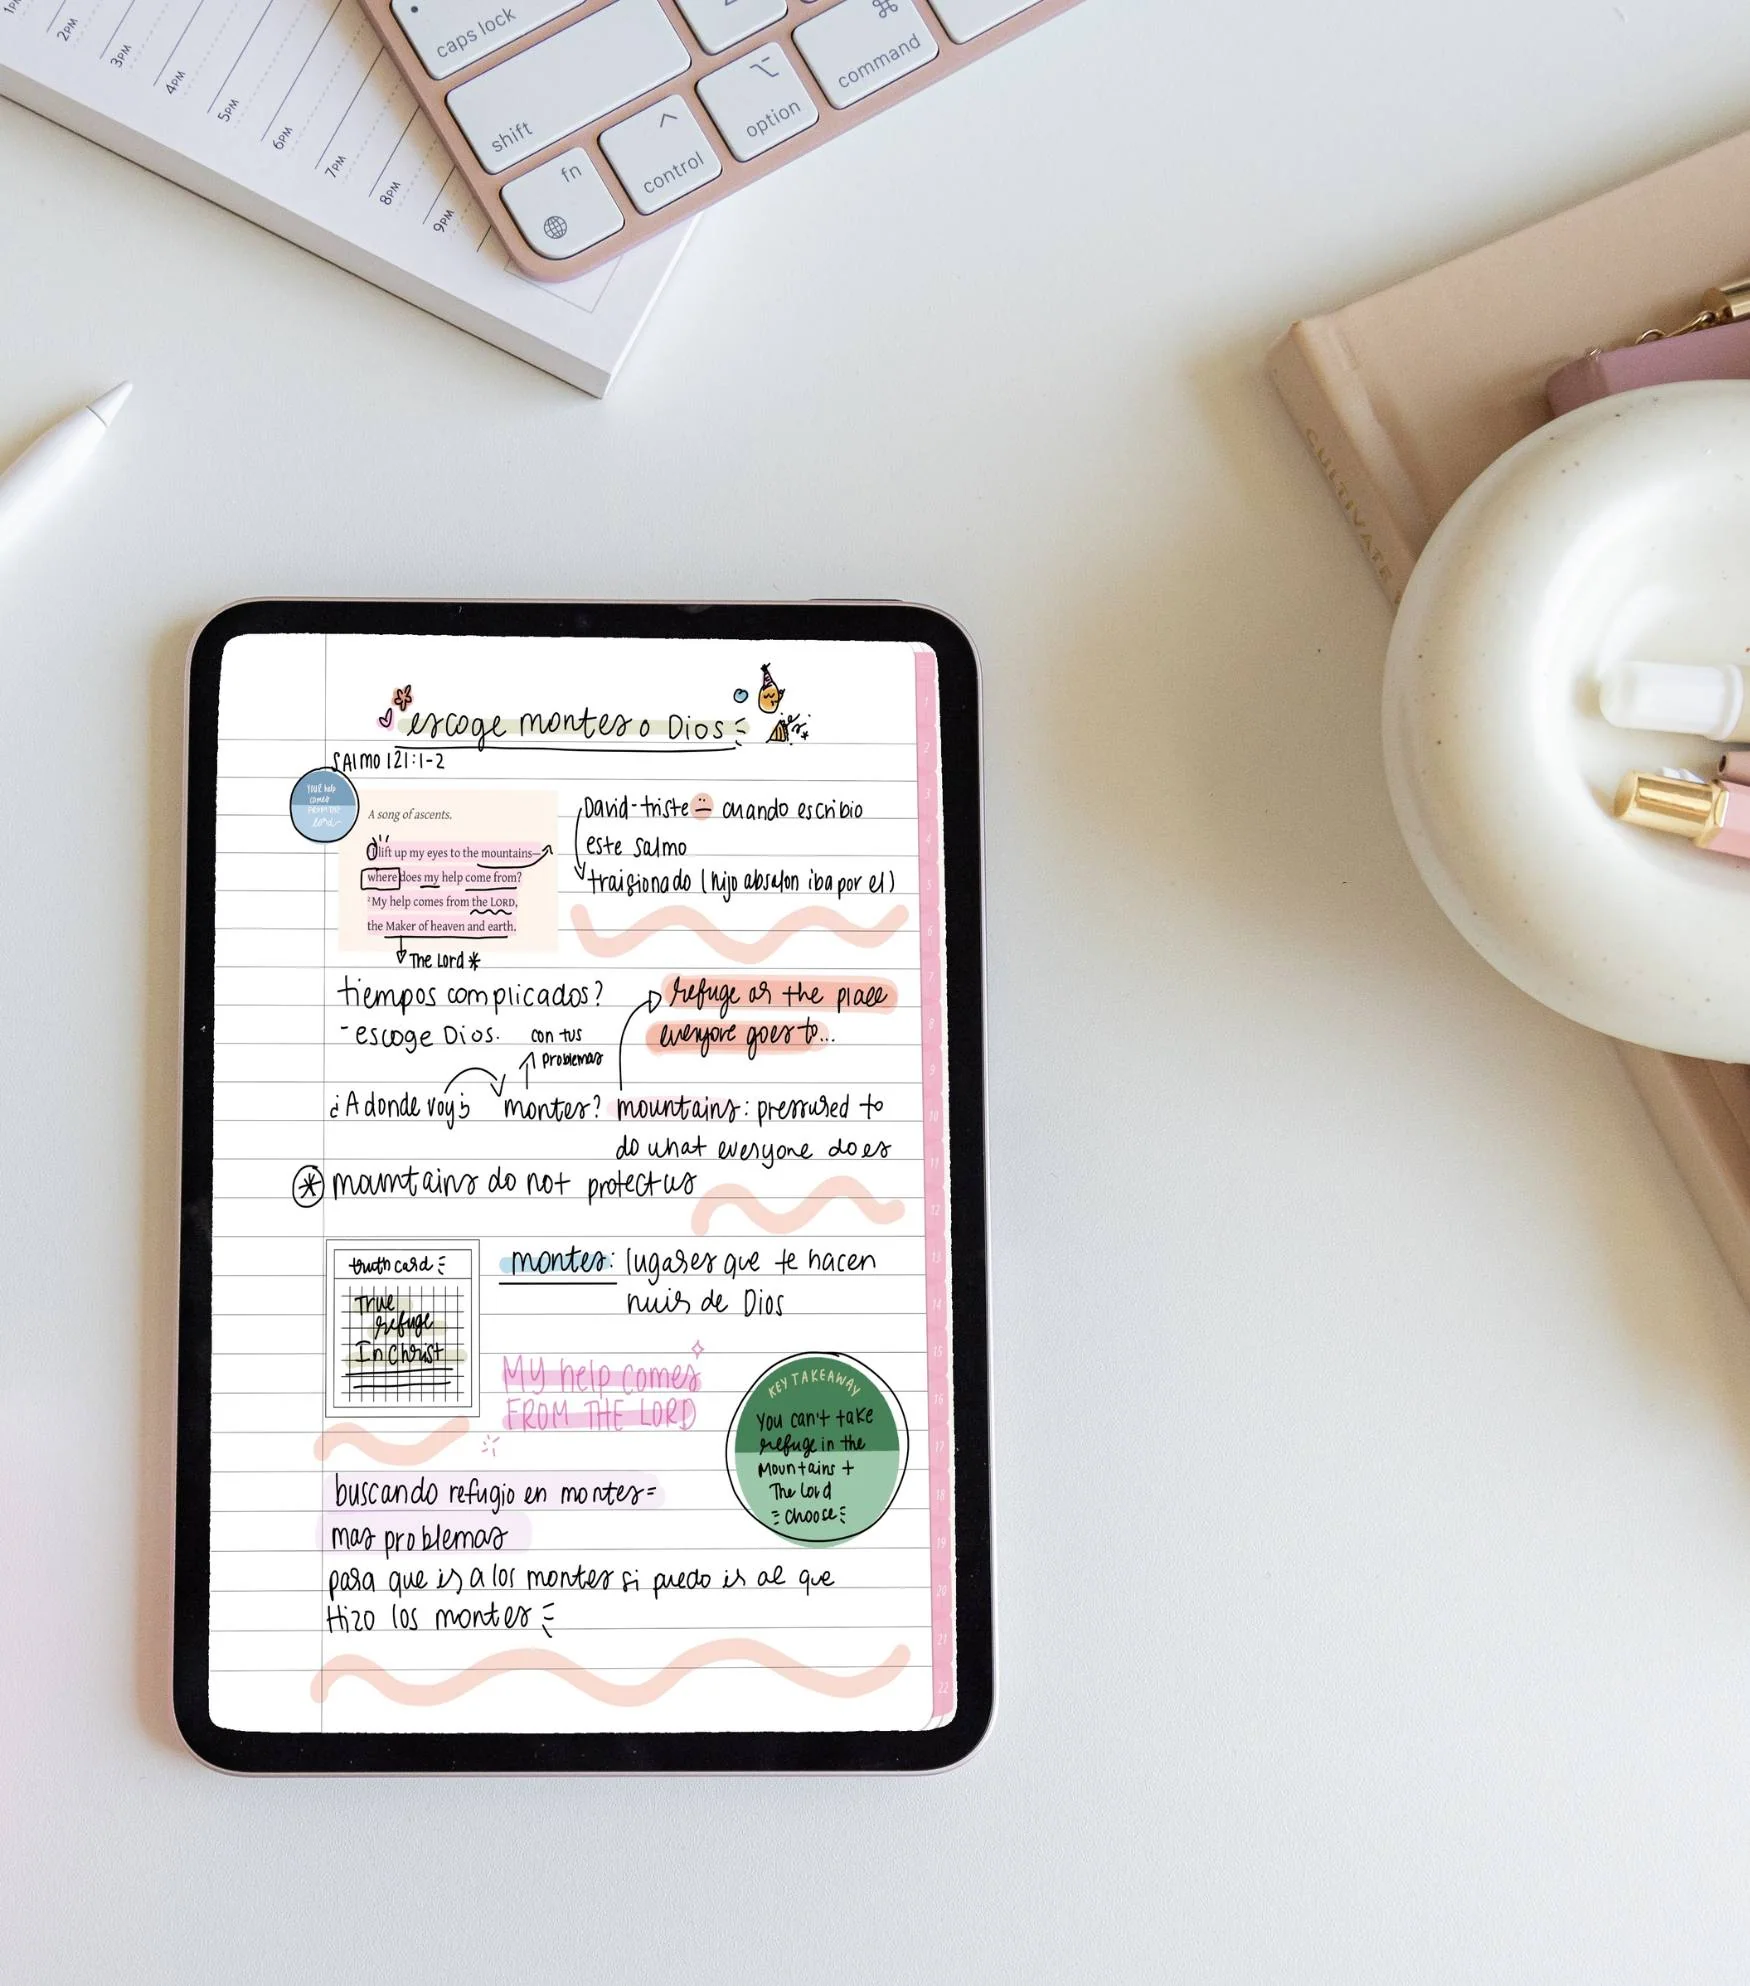 1PM
2PM
3PM
4PM
5PM
6PM
7PM
8PM
9PM
caps lock
shift
fn
control
option
command
CULTIVATE
escoge montes o Dios
SAlmo 121:1-2
YOUR help
comes
FROM THE
Lord
A song of ascents.
I lift up my eyes to the mountains—
where does my help come from?
2 My help comes from the LORD,
the Maker of heaven and earth.
The Lord *
David-triste cuando escribio
este salmo
traicionado (hijo absalon iba por el)
tiempos complicados?
- escoge Dios.
con tus
problemas
refuge as the place
everyone goes to...
¿A donde voy?
montes?
mountains: pressured to
do what everyone does
* mountains do not protect us
truth card
True
refuge
In Christ
montes: lugares que te hacen
huir de Dios
MY help comes
FROM THE LORD
KEY TAKEAWAY
You can't take
refuge in the
Mountains +
The Lord
choose
buscando refugio en montes=
mas problemas
para que ir a los montes si puedo ir al que
Hizo los montes
1
2
3
4
5
6
7
8
9
10
11
12
13
14
15
16
17
18
19
20
21
22